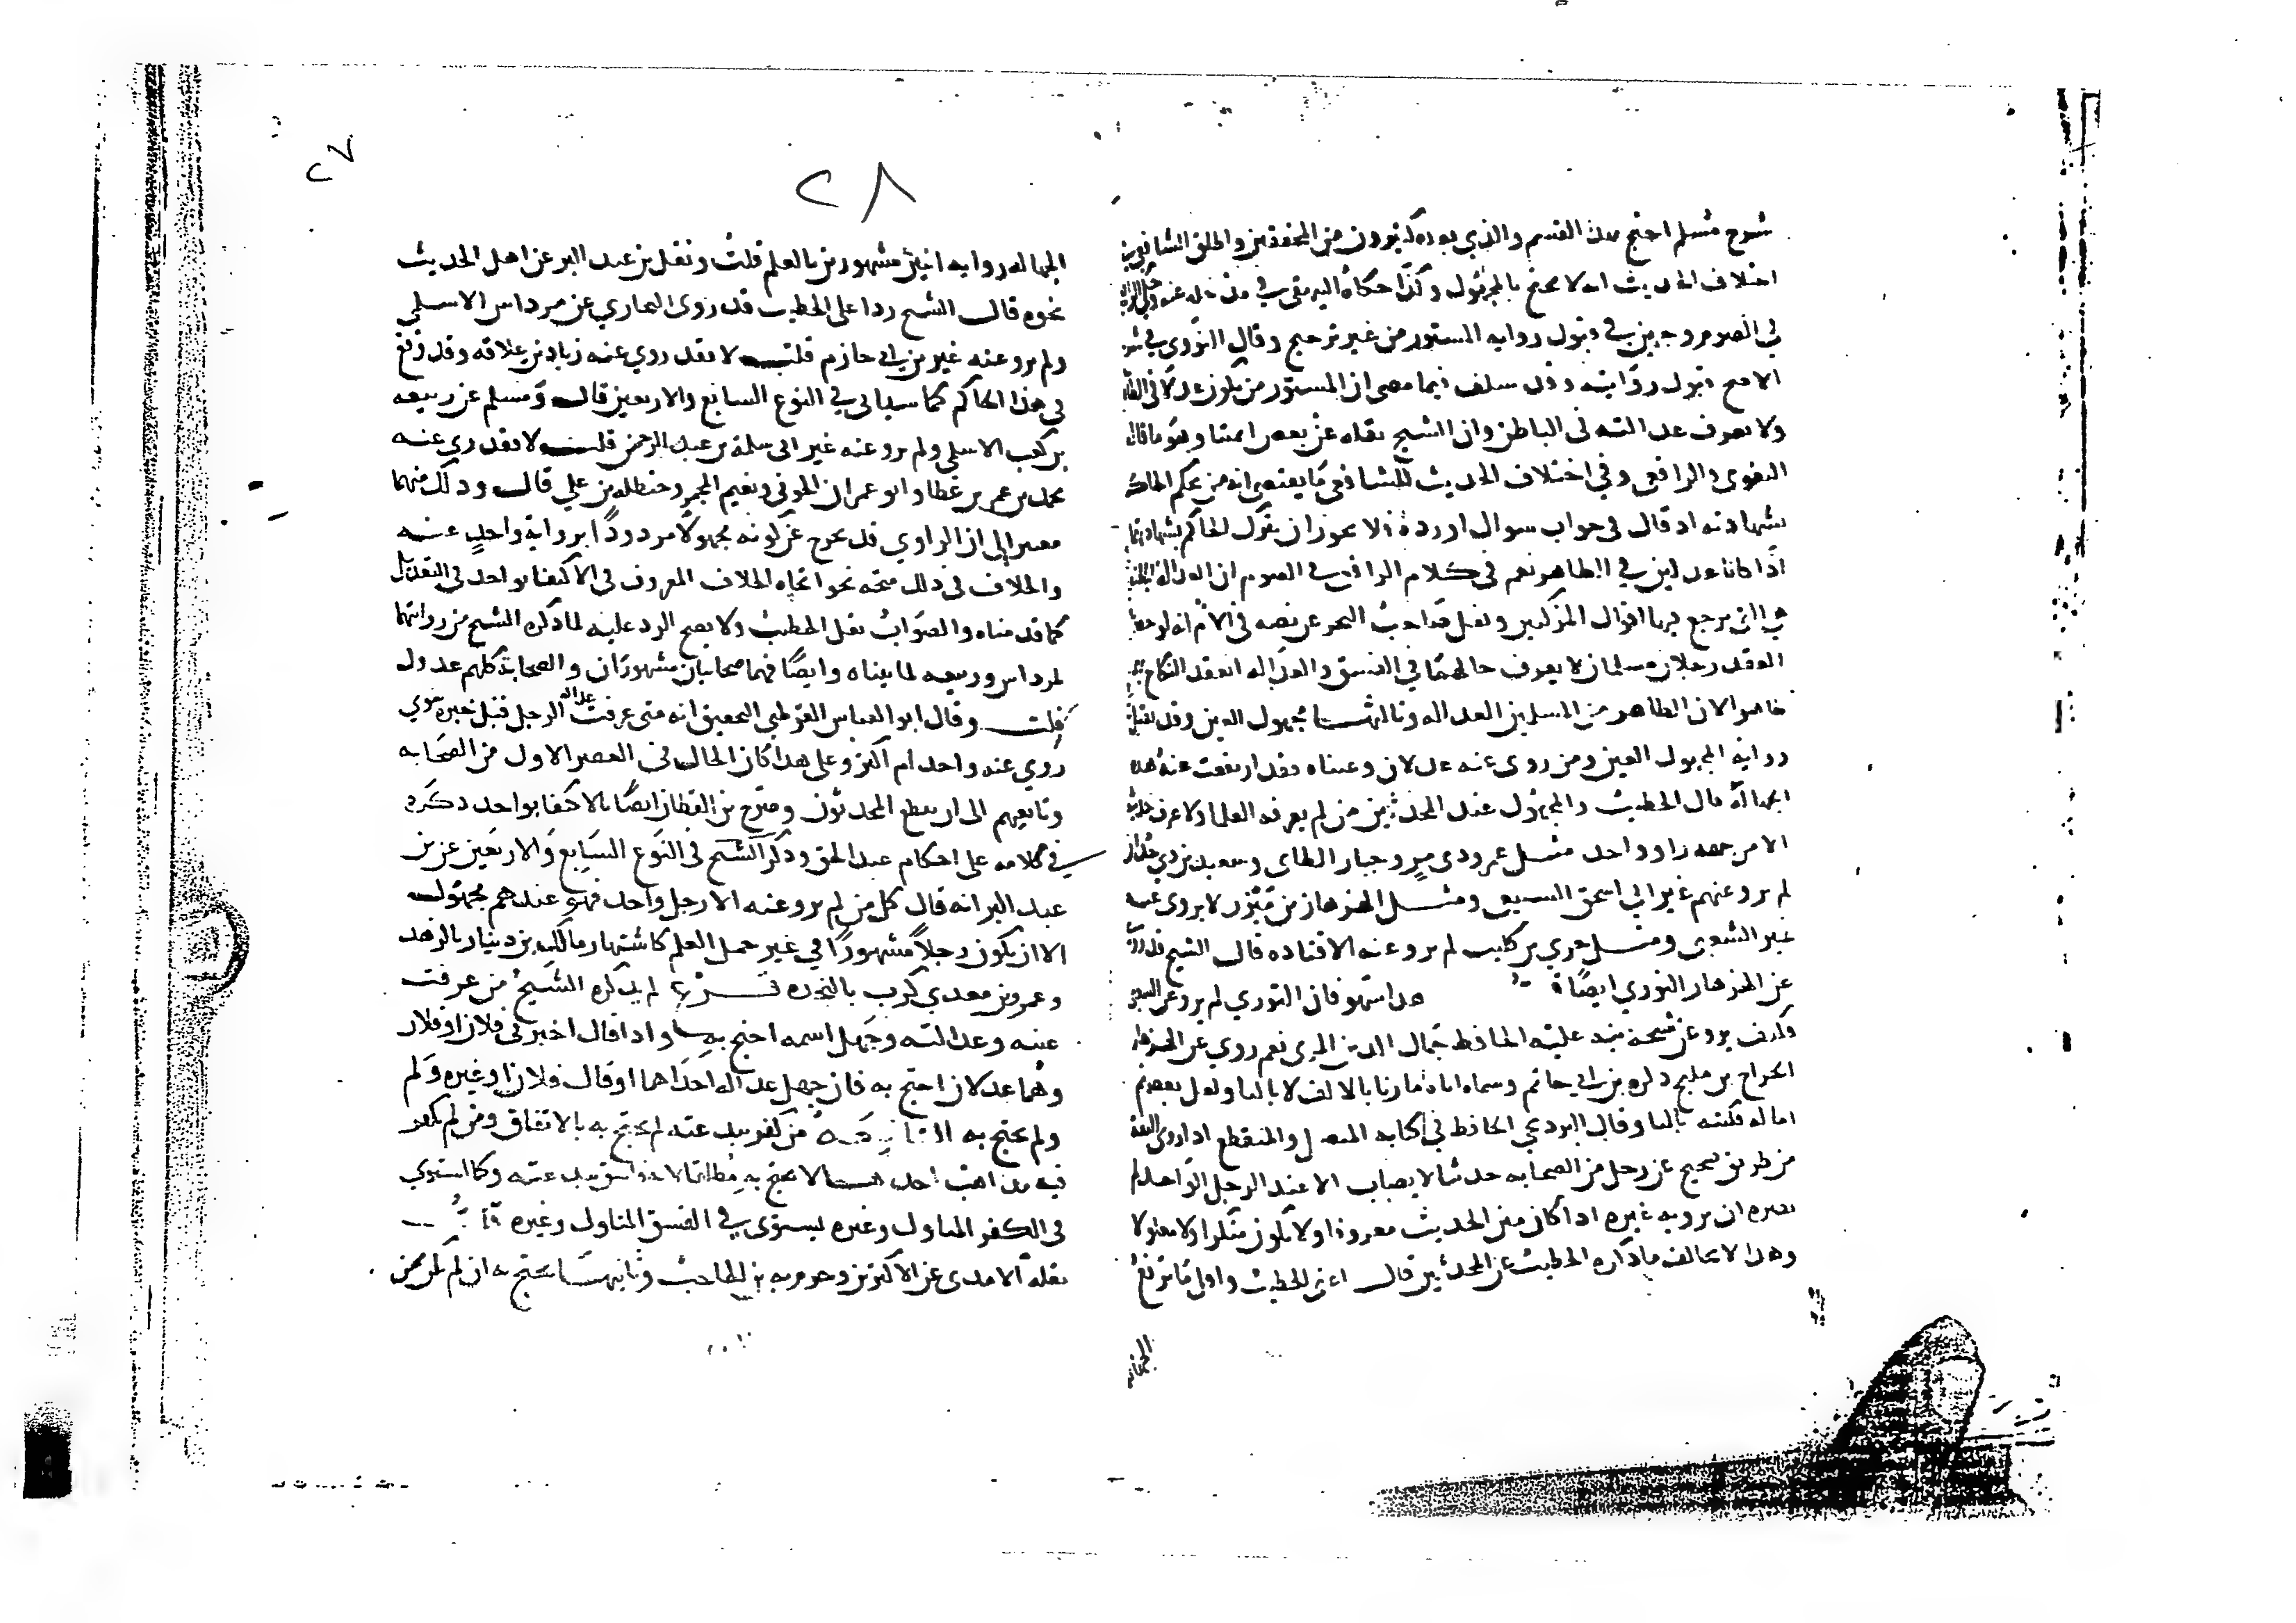 شرح مسلم احتج بهذا القسم والذي بعده كثيرون من المحققين واطلق الشافعي في
اختلاف الحديث انه لا يحتج بالمجهول وكذا حكاه البيهقي في مدخله عنه وحكى الرافعي
في الصوم وجهين في قبول رواية المستور من غير ترجيح وقال النووي في شرحه
الاصح قبول روايته وقد سلف فيما مضى ان المستور من يكون عدلا في الظاهر
ولا يعرف عدالته في الباطن وان الشيخ نقله عن بعض ائمتنا وهو ما قاله
البغوي والرافعي وفي اختلاف الحديث للشافعي ما يقتضي انه من يحكم الحاكم
بشهادته اذ قال في جواب سوال اورده فلا يجوز ان يترك الحاكم بشهادتهما
اذا كانا عدلين في الظاهر نعم في كلام الرافعي في الصوم ان العدالة الباطنة
هي التي يرجع فيها اقوال المزكيين ونقل صاحب البحر عن نصه في الام انه لو حضر
العقد رجلان مسلمان لا يعرف حالهما في الفسق والعدالة انعقد النكاح بهما
ظاهرا لان الظاهر من المسلمين العدالة وثالثها مجهول العين وقد يقبل
رواية المجهول العين ومن روى عنه عدلان وعيناه فقد ارتفعت عنه هذه
الجهالة قال الخطيب والمجهول عند المحدثين من لم يعرفه العلما ولا عرف حديثه
الا من جهة راو واحد مثل عمرو ذي مر وجبار الطاي وسعيد بن ذي حدان
لم يرو عنهم غير ابي اسحق السبيعي ومثل الهزهاز بن ميزن لا يروى عنه
غير الشعبي ومثل جري بن كليب لم يرو عنه الا قتادة قال الشيخ قد روى
عن الهزهاز الثوري ايضا هذا سهو فان الثوري لم يرو عن الشعبي
فكيف يروي عن شيخه نبه عليه الحافظ جمال الدين المزي نعم روى عن الهزهاز
الجراح بن مليح ذكره بن ابي حاتم وسماه اباه مازنا بالالف لا باليا ولعل بعضهم
اماله فكتبه باليا وقال البرديجي الحافظ في كتابه المتصل والمنقطع اذا روى الثقة
من طريق صحيح عن رجل من الصحابة حديثا لا يصاب الا عند الرجل الواحد لم
يضره ان يرويه غيره اذا كان متن الحديث معروفا ولا يكون منكرا ولا معلولا
وهذا لا يخالف ما ذكره الخطيب عن المحدثين قال اعني الخطيب واول ما ترتفع
الجهالة
٢٨
٢٧
الجهالة رواية اثنين مشهورين بالعلم قلت ونقل بن عبد البر عن اهل الحديث
نحوه قال الشيخ ردا على الخطيب قد روى البخاري عن مرداس الاسلمي
ولم يرو عنه غير بن ابي حازم قلت لا فقد روي عنه زياد بن علاقة وقد وقع
في هذا الحاكم كما سياتي في النوع السابع والاربعين قال ومسلم عن ربيعة
بن كعب الاسلمي ولم يرو عنه غير ابي سلمة بن عبد الرحمن قلت لا فقد روي عنه
محمد بن عمرو بن عطا وابو عمران الجوني ونعيم المجمر وحنظلة بن علي قال وذلك منهما
مصير الى ان الراوي قد يخرج عن كونه مجهولا مردودا برواية واحد عنه
والخلاف في ذلك متجه نحو اتجاه الخلاف المعروف في الاكتفا بواحد في التعديل
كما قدمناه والصواب نقل الخطيب ولا يصح الرد عليه لما ذكره الشيخ من روايتهما
لمرداس وربيعة لما بيناه وايضا فهما صحابيان مشهوران والصحابة كلهم عدول
قلت وقال ابو العباس القرطبي التحقيق انه متى عرفت عدالة الرجل قبل خبره سوى
روى عنه واحد ام اكثر وعلى هذا كان الحال في العصر الاول من الصحابة
وتابعيهم الى ان تنطع المحدثون وصرح بن القطان ايضا بالاكتفا بواحد ذكره
في كلامه على احكام عبد الحق وذكر الشيخ في النوع السابع والاربعين عن بن
عبد البر انه قال كل من لم يرو عنه الا رجل واحد فهو عندهم مجهول
الا ان يكون رجلا مشهورا في غير حمل العلم كاشتهار مالك بن دينار بالزهد
وعمرو بن معدي كرب بالنجدة فرع لم يذكره الشيخ من عرفت
عينه وعدالته وجهل اسمه احتج به واذا قال اخبرني فلان او فلان
وهما عدلان احتج به فان جهل عدالة احداهما او قال فلان او غيره ولم
ولم يحتج به الثامنة من كفر ببدعته لم يحتج به بالاتفاق ومن لم يكفر
فيه مذاهب احدها لا يحتج به مطلقا لانه فاسق ببدعته وكما استوى
في الكفر المتاول وغيره يستوى في الفسق المتاول وغيره
نقله الامدي عن الاكثرين وجزم به بن الحاجب وثانيها يحتج به ان لم يكن ممن